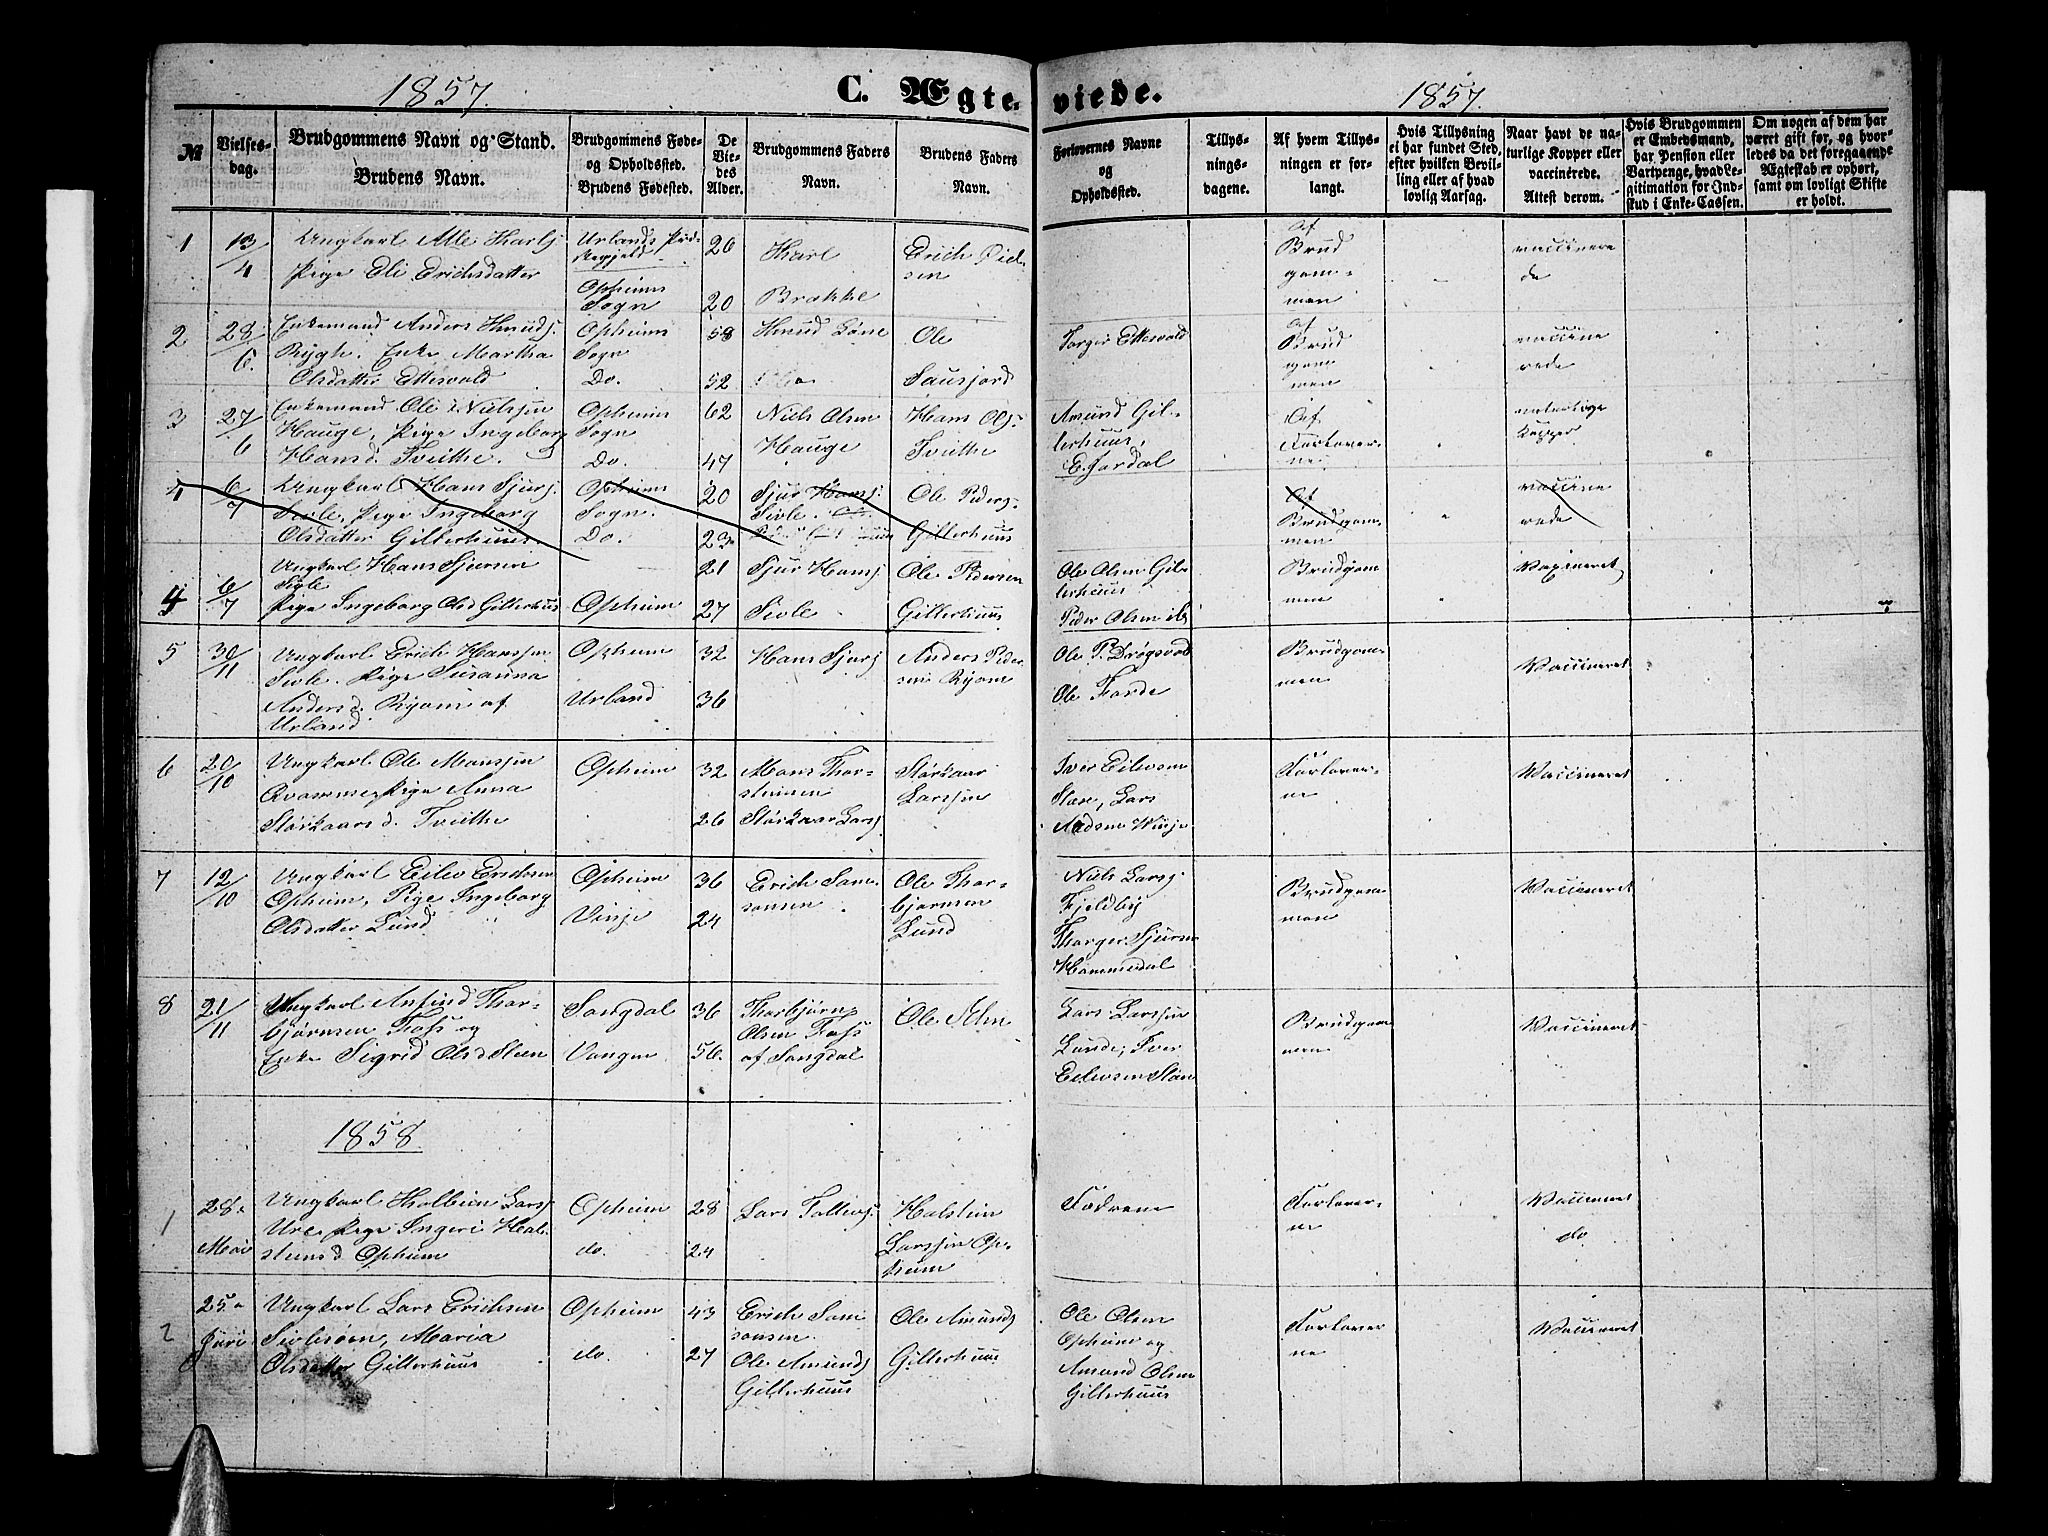 1857.
C. Ægte-
viede.
1857.
№
Vielses-
dag.
Brudgommens Navn og Stand.
Brudens Navn.
Brudgommens Føde-
og Opholdssted.
Brudens Fødested.
De
Vie-
des
Alder.
Brudgommens Faders
Navn.
Brudens Faders
Navn.
Forlovernes Navne
og
Opholdssted.
Tillys-
nings-
dagene.
Af hvem Tillys-
ningen er for-
langt.
Hvis Tillysning
ei har fundet Sted,
efter hvilken Bevil-
ling eller af hvad
lovlig Aarsag.
Naar havt de na-
turlige Kopper eller
vaccinerede.
Attest derom.
Hvis Brudgommen
er Embedsmand,
har Pension eller
Vartpenge, hvad Le-
gitimation for Ind-
skud i Enke-Cassen.
Om nogen af dem har
været gift før, og hvor-
ledes da det foregaaende
Ægteskab er ophørt,
samt om lovligt Skifte
er holdt.
1
13/4
Ungkarl Atle
Pige Eli Erichsdatter
Urlands
Opheims
Sogn
26
20
Brække
Erich
Af
Brud
gom-
men
vaccinere
de
2
28/6
Enkemand Anders Knuds.
Rygh. Enke Martha
Olsdatter Ettesvold
Opheims
Sogn
Do.
58
52
Knud Løne
Ole
Sausjord
Torger Ettesvold
Af
Brud
gom
men
vaccine
rede
3
27/6
Enkemand Ole Nielssen
Hauge, Pige Ingeborg
Hansd. Tvithe.
Opheims
Sogn
Do.
62
47
Niels Olsen
Hauge
Hans Ols.
Tvithe
Amund Gil-
lerhuus,
E. Jordal
Af
Forlover-
ne
naturlige
Kopper
4
6/7
Ungkarl Hans Sjurs.
Sivle, Pige Ingeborg
Olsdatter Gillerhuus.
Opheims
Sogn.
Do.
20
23
Sjur Hans.
Sivle.
Ole Peders.
Gillerhuus
Af
Brudgom-
men
vaccine
rede
4
6/7
Ungkarl Hans Sjursen
Sivle
Pige Ingeborg Olsd Gillerhuus
Opheim
21
27
Sjur Hans.
Sivle
Ole Pedersen
Gillerhuus
Ole Olsen Gil-
lerhuus
Peder Olsen ib.
Brudgom
men
Vaxineret
5
30/11
Ungkarl Erich Hanssen
Sivle. Pige Susanna
Andersd. Ryom af
Urland
Opheim
Urland
32
36
Hans Sjurs.
Anders Peder
sen Ryom
Ole P. Drogsvold
Ole Farde
Brudgom-
men
Vaccineret
6
20/10
Ungkarl Ole Monssen
Qvamme Pige Anna
Størkaarsd. Tvithe
Opheim
32
26
Mons Thor-
steinsen
Størkaar Lars.
Størkaar
Larssen
Iver Eilevsen
Støre, Lars
Vinje
Forlover-
ne
Vaccineret
7
12/10
Ungkarl Eilev Erichsen
Opheim, Pige Ingeborg
Olsdatter Lund
Opheim
Vinje
36
24
Erich Sam-
sonsen
Ole Thor-
bjørnsen
Lund
Niels Lars.
Fjeldby
Thorger Sjursen
Hommedal
Brudgom-
men
Vaccineret
8
21/11
Ungkarl Anfind Thor-
bjørnsen Foss og
Enke Sigrid Olsd Steen
Sogndal
Vangen
36
56.
Thorbjørn
Olsen Foss
af Sogndal
Ole Alm
Lars Larssen
Lunde, Iver
Eilevsen Støre
Brudgom
men
Vaccineret
1858.
1
28.
Mai
Ungkarl Kolbein Lars.
Ure Pige Ingeri Hal-
steinsd Opheim
Opheim
do.
28
24
Lars
Halstein
Larssen Op-
heim
Fædrene
Forlover-
ne
Vaccineret
do
2
25.
Juni
Ungkarl Lars Erichsen
Maria
Olsdatter Gillerhuus
Opheim
do.
43
27
Erich Sam
sonsen
Ole Amunds.
Gillerhuus
Ole Amunds.
Gillerhuus
Ole Olsen
Opheim og
Amund Olsen
Gillerhuus
Forlover
ne
Vaccineret